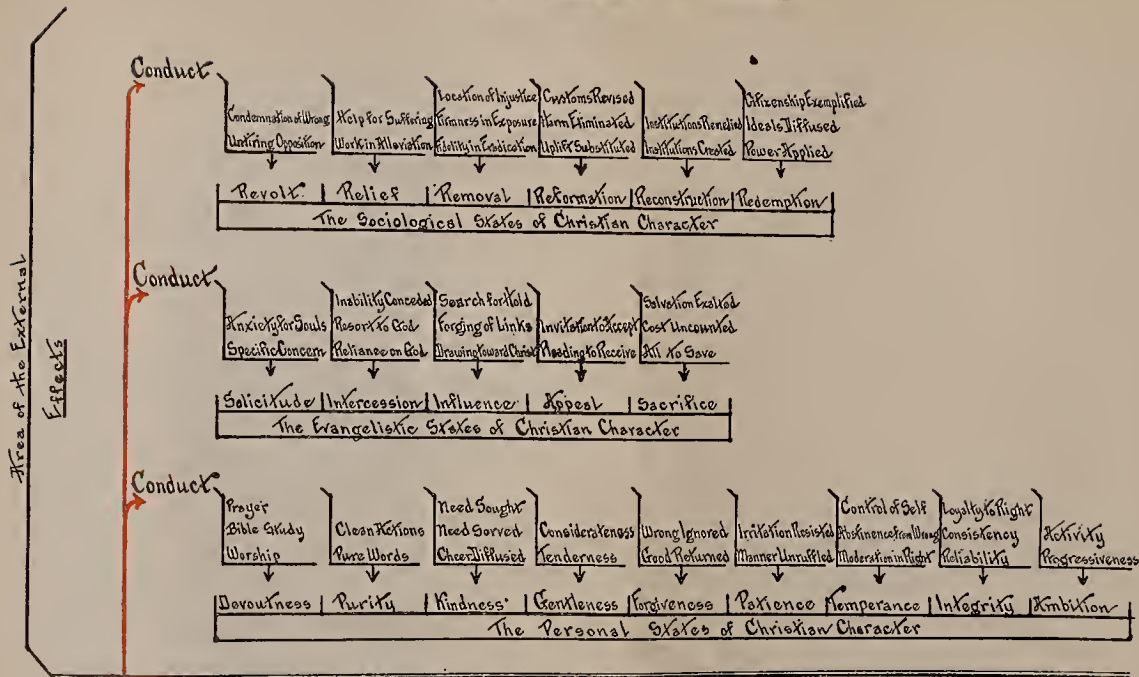 Area of the External
Effects
Conduct
Condemnation of Wrong
Untiring Opposition
Help for Suffering
Work in Alleviation
Location of Injustice
Firmness in Exposure
Fidelity in Eradication
Customs Revised
Harm Eliminated
Uplift Substituted
Institutions Remedied
Institutions Created
Citizenship Exemplified
Ideals Diffused
Power Applied
Revolt. | Relief | Removal | Reformation | Reconstruction | Redemption
The Sociological States of Christian Character
Conduct
Anxiety for Souls
Specific Concern
Inability Conceded
Resort to God
Reliance on God
Search for Hold
Forging of Links
Drawing toward Christ
Invitation to Accept
Pleading to Receive
Salvation Exalted
Cost Uncounted
All to Save
Solicitude | Intercession | Influence | Appeal | Sacrifice
The Evangelistic States of Christian Character
Conduct
Prayer
Bible Study
Worship
Clean Actions
Pure Words
Need Sought
Need Served
Cheer Diffused
Considerateness
Tenderness
Wrong Ignored
Good Returned
Irritation Resisted
Manner Unruffled
Control of Self
Abstinence from Wrong
Moderation in Right
Loyalty to Right
Consistency
Reliability
Activity
Progressiveness
Devoutness | Purity | Kindness | Gentleness | Forgiveness | Patience | Temperance | Integrity | Ambition
The Personal States of Christian Character